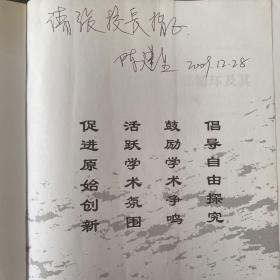 请张校長指正
陈建生 2009.12.28
倡导自由探究
鼓励学术争鸣
活跃学术氛围
促进原始创新